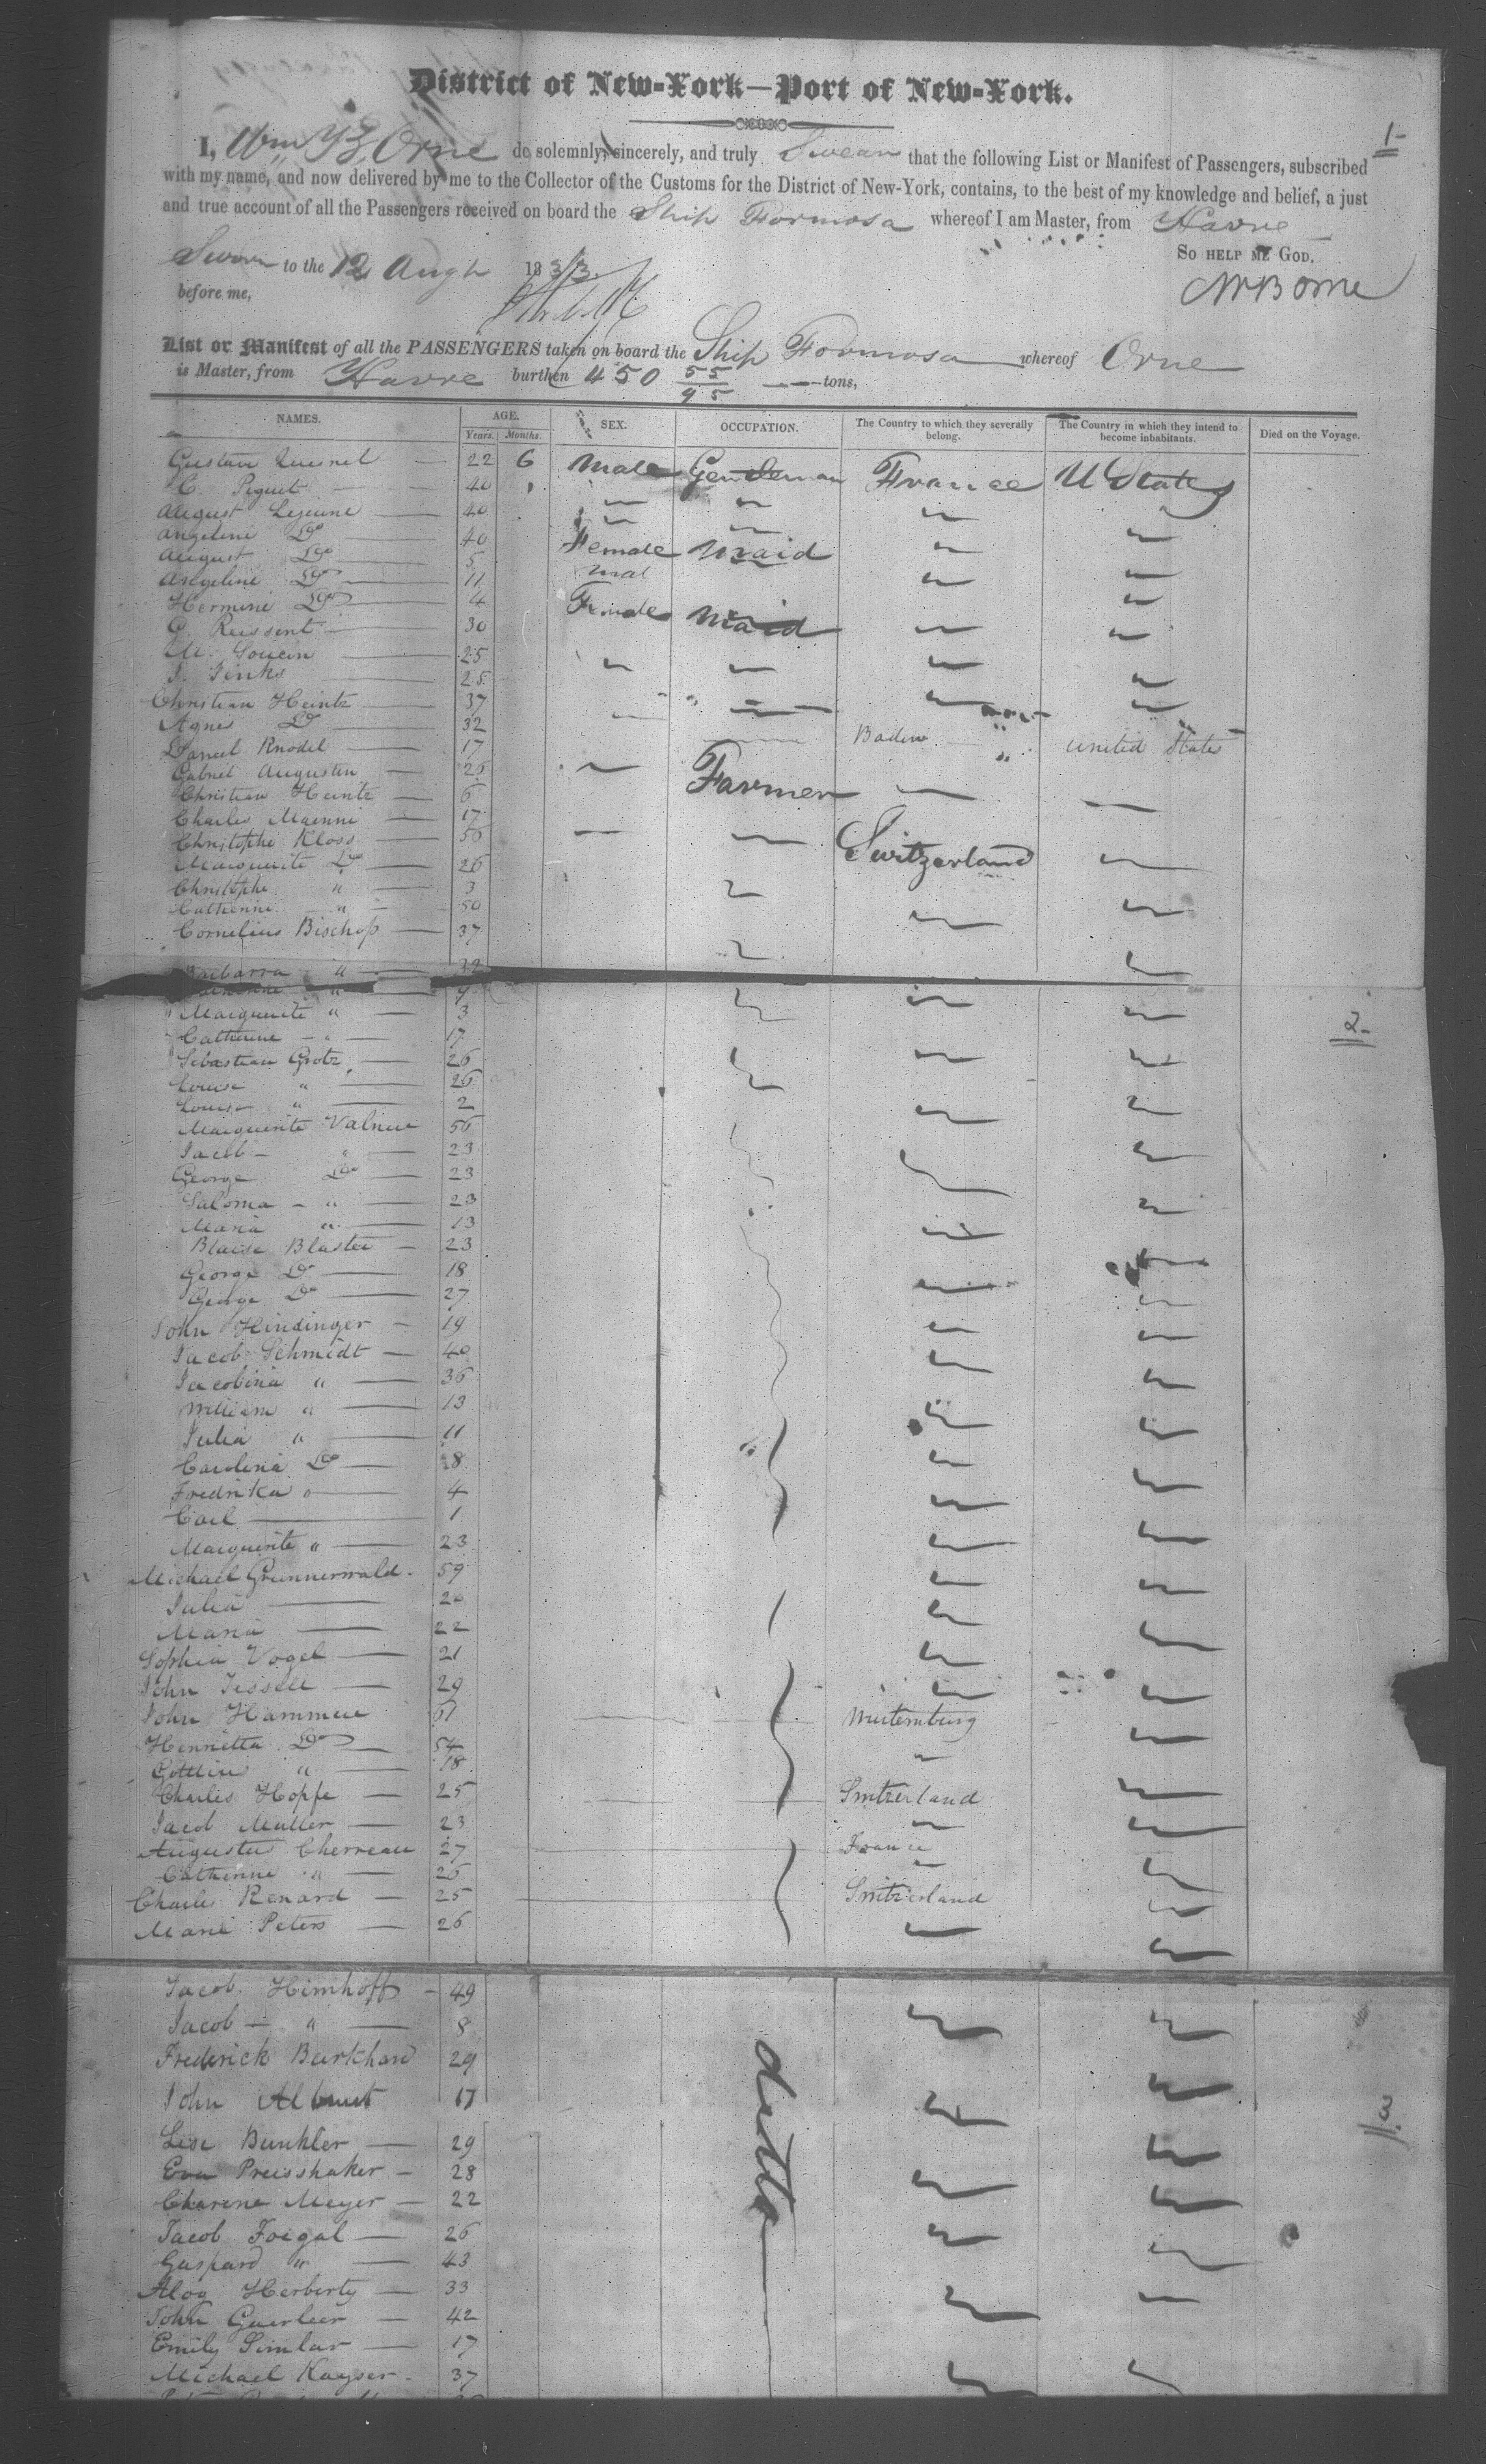 District of New-York—Port of New-York.
1-
I, Wm B. Orne do solemnly, sincerely, and truly Swear that the following List or Manifest of Passengers, subscribed
with my name, and now delivered by me to the Collector of the Customs for the District of New-York, contains, to the best of my knowledge and belief, a just
and true account of all the Passengers received on board the Ship Formosa whereof I am Master, from Havre
So HELP ME GOD.
Sworn to the 12 Augt 1833.
before me,
WB Orne
List or Manifest of all the PASSENGERS taken on board the Ship Formosa whereof Orne
is Master, from Havre burthen 450 55/95 tons,
NAMES. AGE. Years. Months. SEX. OCCUPATION. The Country to which they severally belong. The Country in which they intend to become inhabitants. Died on the Voyage.
Gustave 22 6 Male Gentleman France U States
C. Piquet 40 "
August Lejeune 40
Angeline Do 40 Female Maid
August Do 5 Mal
Angeline Do 11
Hermine Do 4 Female Maid
G. Reissent 30
M. 25
J. Jenks 25
Christian Heintz 37
Agnes Do 32
Daniel Knodel 17 Baden United States
Gabriel Augustin 26 Farmer
Christian Heintz 6
Charles Maenni 17
Christophe Kloss 56 Switzerland
Marguerite Do 26
Christophe " 3
Catherine " 50
Cornelius Bischop 37
Barbarra " 32
2-
Marguerite " 3
Catherine " 17
Sebastian Grotz 26
Louise " 26
Louise " 2
Marguerite 56
Jacob " 23
George Do 23
Saloma " 23
Maria " 13
Blaise Blaster 23
George Do 18
George Do 27
John Hindinger 19
Jacob Schmidt 40
Jacobina " 36
William " 13
Julia " 11
Carolina Do 8
Fredrika " 4
Carl 1
Marguerite " 23
Michael Grunnerwald 59
Julia 20
Maria 22
Sophia Vogel 21
John 29
John Hammer 61 Wurtemburg
Henrietta Do 54
" 18
Charles Hopfe 25 Switzerland
Jacob Muller 23
Augustus Cherreau 27 France
Catherine " 26
Charles Renard 25 Switzerland
Marie Peters 26
Jacob Himhoff 49
Jacob " 8
Frederick Burkhard 29
3.
John 17 ditto
Lise Bunkler 29
Eva Preisshaker 28
Meyer 22
Jacob Foegal 26
Gaspard " 43
Herberty 33
John 42
Emily Simlar 17
Michael Kayser 37